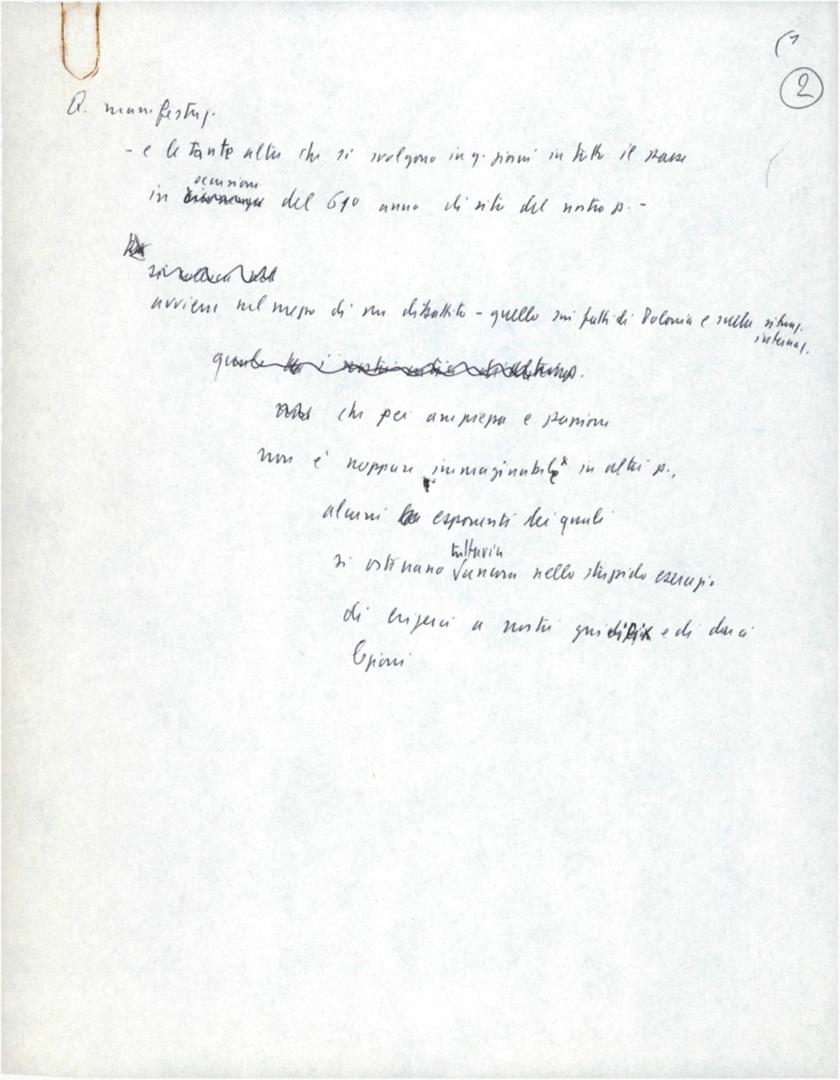 2
Q. manifestaz.
- e le tante altre che si svolgono in q. giorni in tutto il paese
occasione
in del 61º anno di vita del nostro p. -
avviene nel mezzo di un dibattito - quello sui fatti di Polonia e sulla situaz.
internaz.
che per ampiezza e passione
non è neppure immaginabile in altri p.,
alcuni esponenti dei quali
tuttavia
si ostinano ancora nello stupido esercizio
di ergersi a nostri giudici e di darci
lezioni